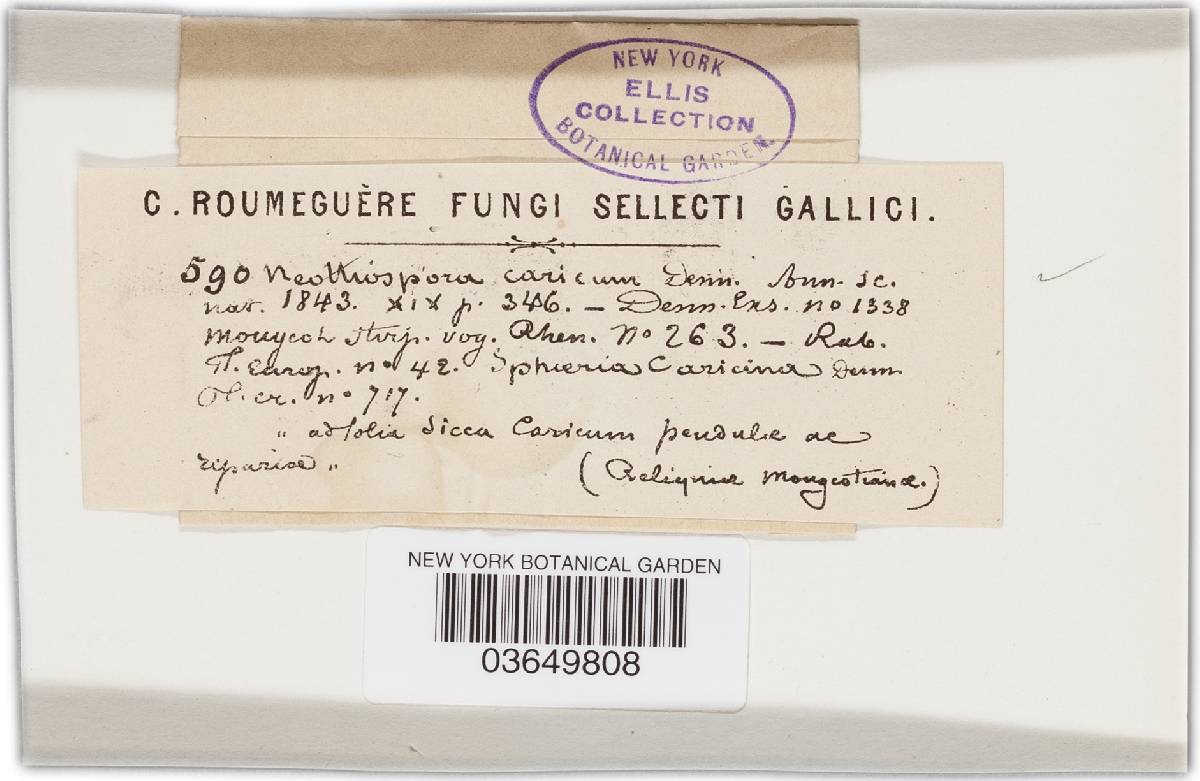 NEW YORK
ELLIS
COLLECTION
BOTANICAL GARDEN.
C. ROUMEGUÈRE FUNGI SELLECTI GALLICI.
590 Neottiospora caricum Desm. Ann. Sc.
nat. 1843. XIX p. 346. — Desm. Exs. no 1338
Mougeot Stirp. vog. Rhen. No 263. — Rab.
F. Europ. no 42. Sphæria Caricina Desm
Pl. cr. no 717.
„ ad folia Sicca Caricum pendulæ ac
ripariæ „
(Reliquiæ Mougeotianæ.)
NEW YORK BOTANICAL GARDEN
03649808